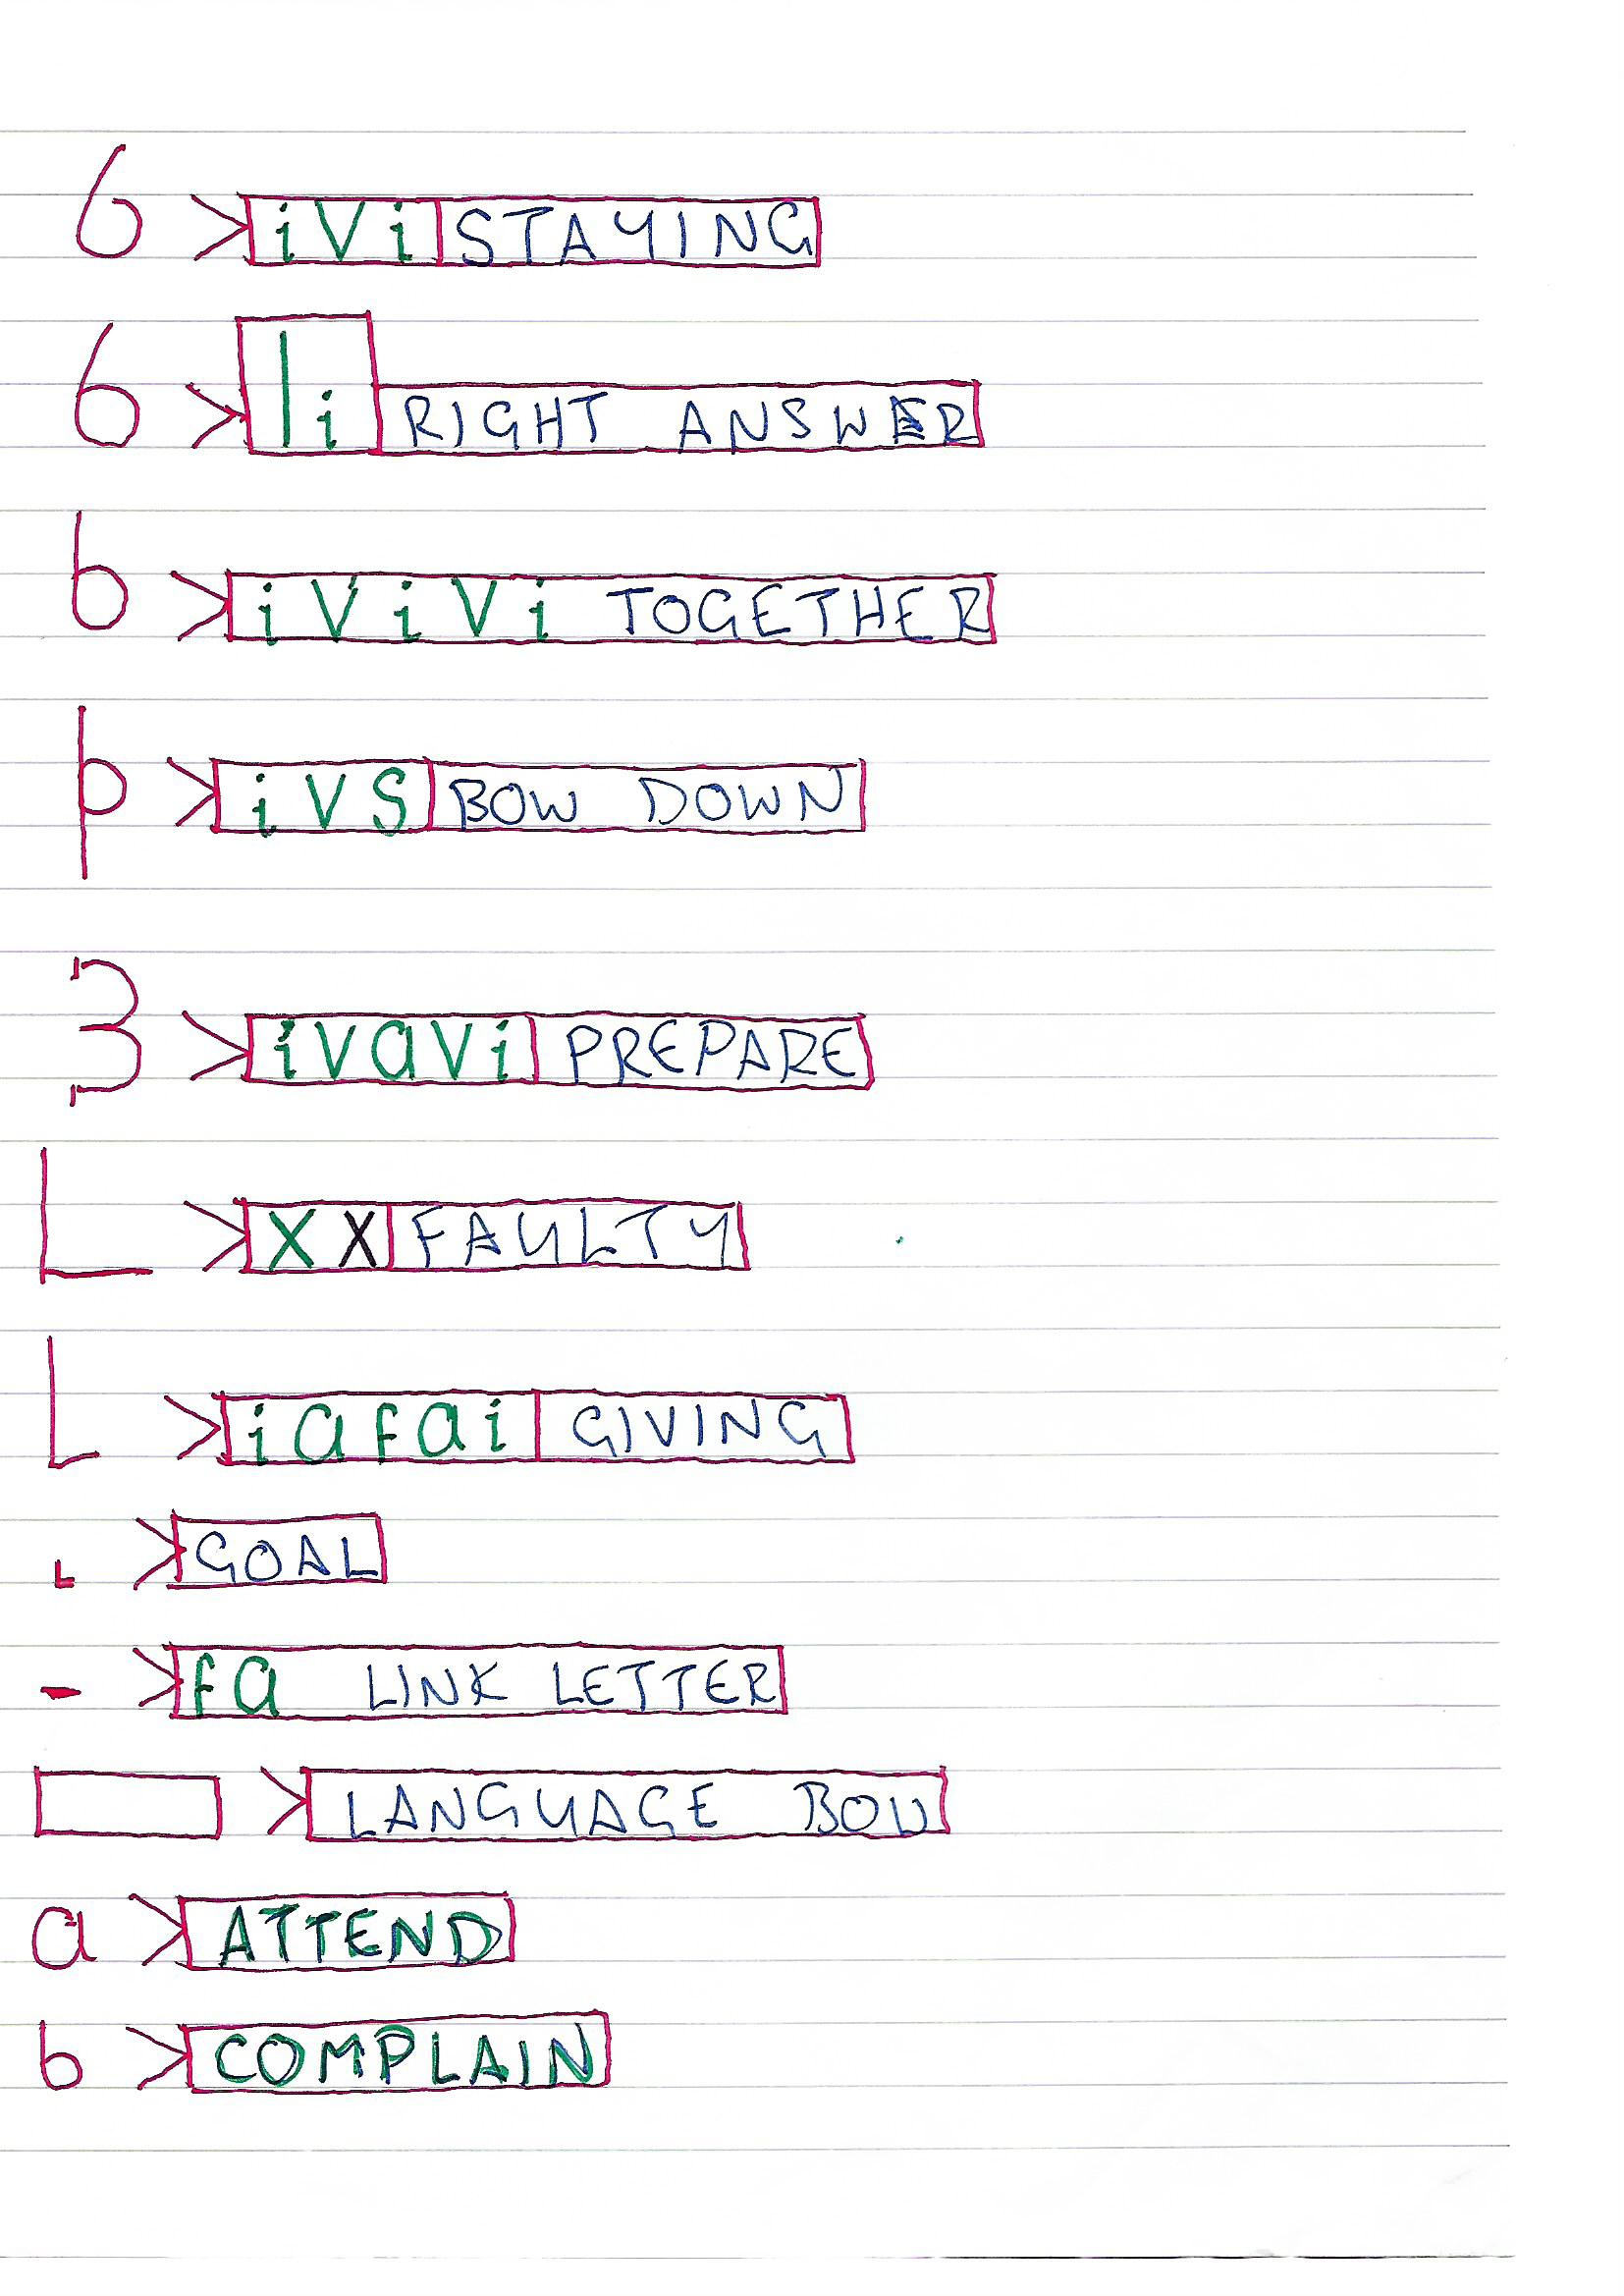 6 > iVi STAYING
6 > li RIGHT ANSWER
b > iViVi TOGETHER
þ > iVS BOW DOWN
3 > ivavi PREPARE
L > X X FAULTY
L > iafai GIVING
L > GOAL
- > fa LINK LETTER
> LANGUAGE BOW
a > ATTEND
b > COMPLAIN